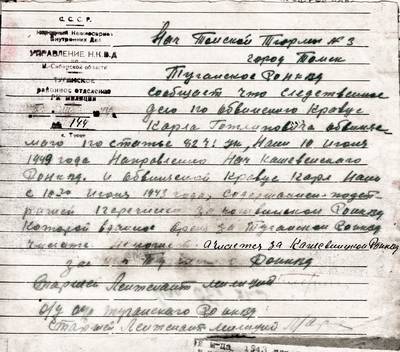 С. С. С. Р.
Народный Комиссариат
Внутренних Дел
УПРАВЛЕНИЕ Н.К.В.Д
Н.-Сибирской области
ТУГАНСКОЕ
РАЙОННОЕ ОТДЕЛЕНИЕ
Р-К МИЛИЦИИ
№ 144
г. Томск
Нач Томской Тюрьмы № 3
город Томск
Туганское Ронквд
сообщает что следственное
дело по обвинению Краус
Карла Готлиповича обвиняе-
мого по статье 82 ч1 ук, Нами 10 Июня
1943 года Направлено Нач Кашевенского
Ронквд. и обвиняемой Краус Карл Нами
с 10го Июня 1943 года, содержанием под ст-
ражей Перечислен за Ронквд
Которой в данное время за Туганским Ронквд
Числится за Кашевинской Ронквд
за Ронквд
Старшей Лейтенант милиции
О/У Туганского Ронквд
Старшей Лейтенант милиции